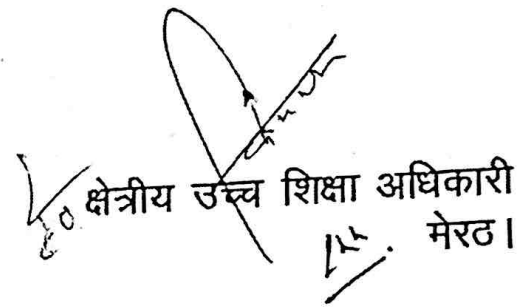 क्षेत्रीय उच्च शिक्षा अधिकारी
मेरठ।